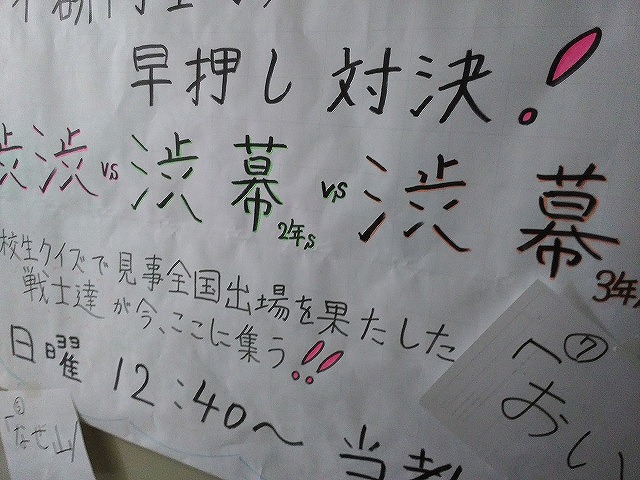 早押し対決!
渋渋vs渋幕2年,s vs渋幕3年,s
校生クイズで見事全国出場を果たした
戦士達が今、ここに集う!!
日曜 12:40〜
⑦
へ
おい
「なぜ山」